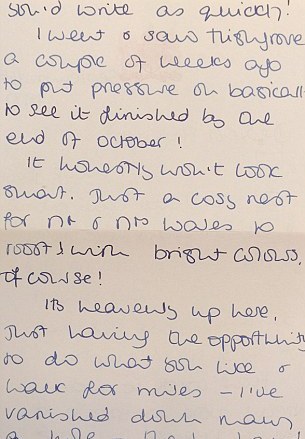 you'd write as quickly!
I went & saw Highgrove
a couple of weeks ago
to put pressure on basicall
to see it finished by the
end of October!
It honestly won't look
smart. Just a cosy nest
for Mr & Mrs Wales to
roost! with bright colours,
of course!
It's heavenly up here,
Just having the opportunit
to do what you like &
walk for miles - I've
vanished down many
a hole -